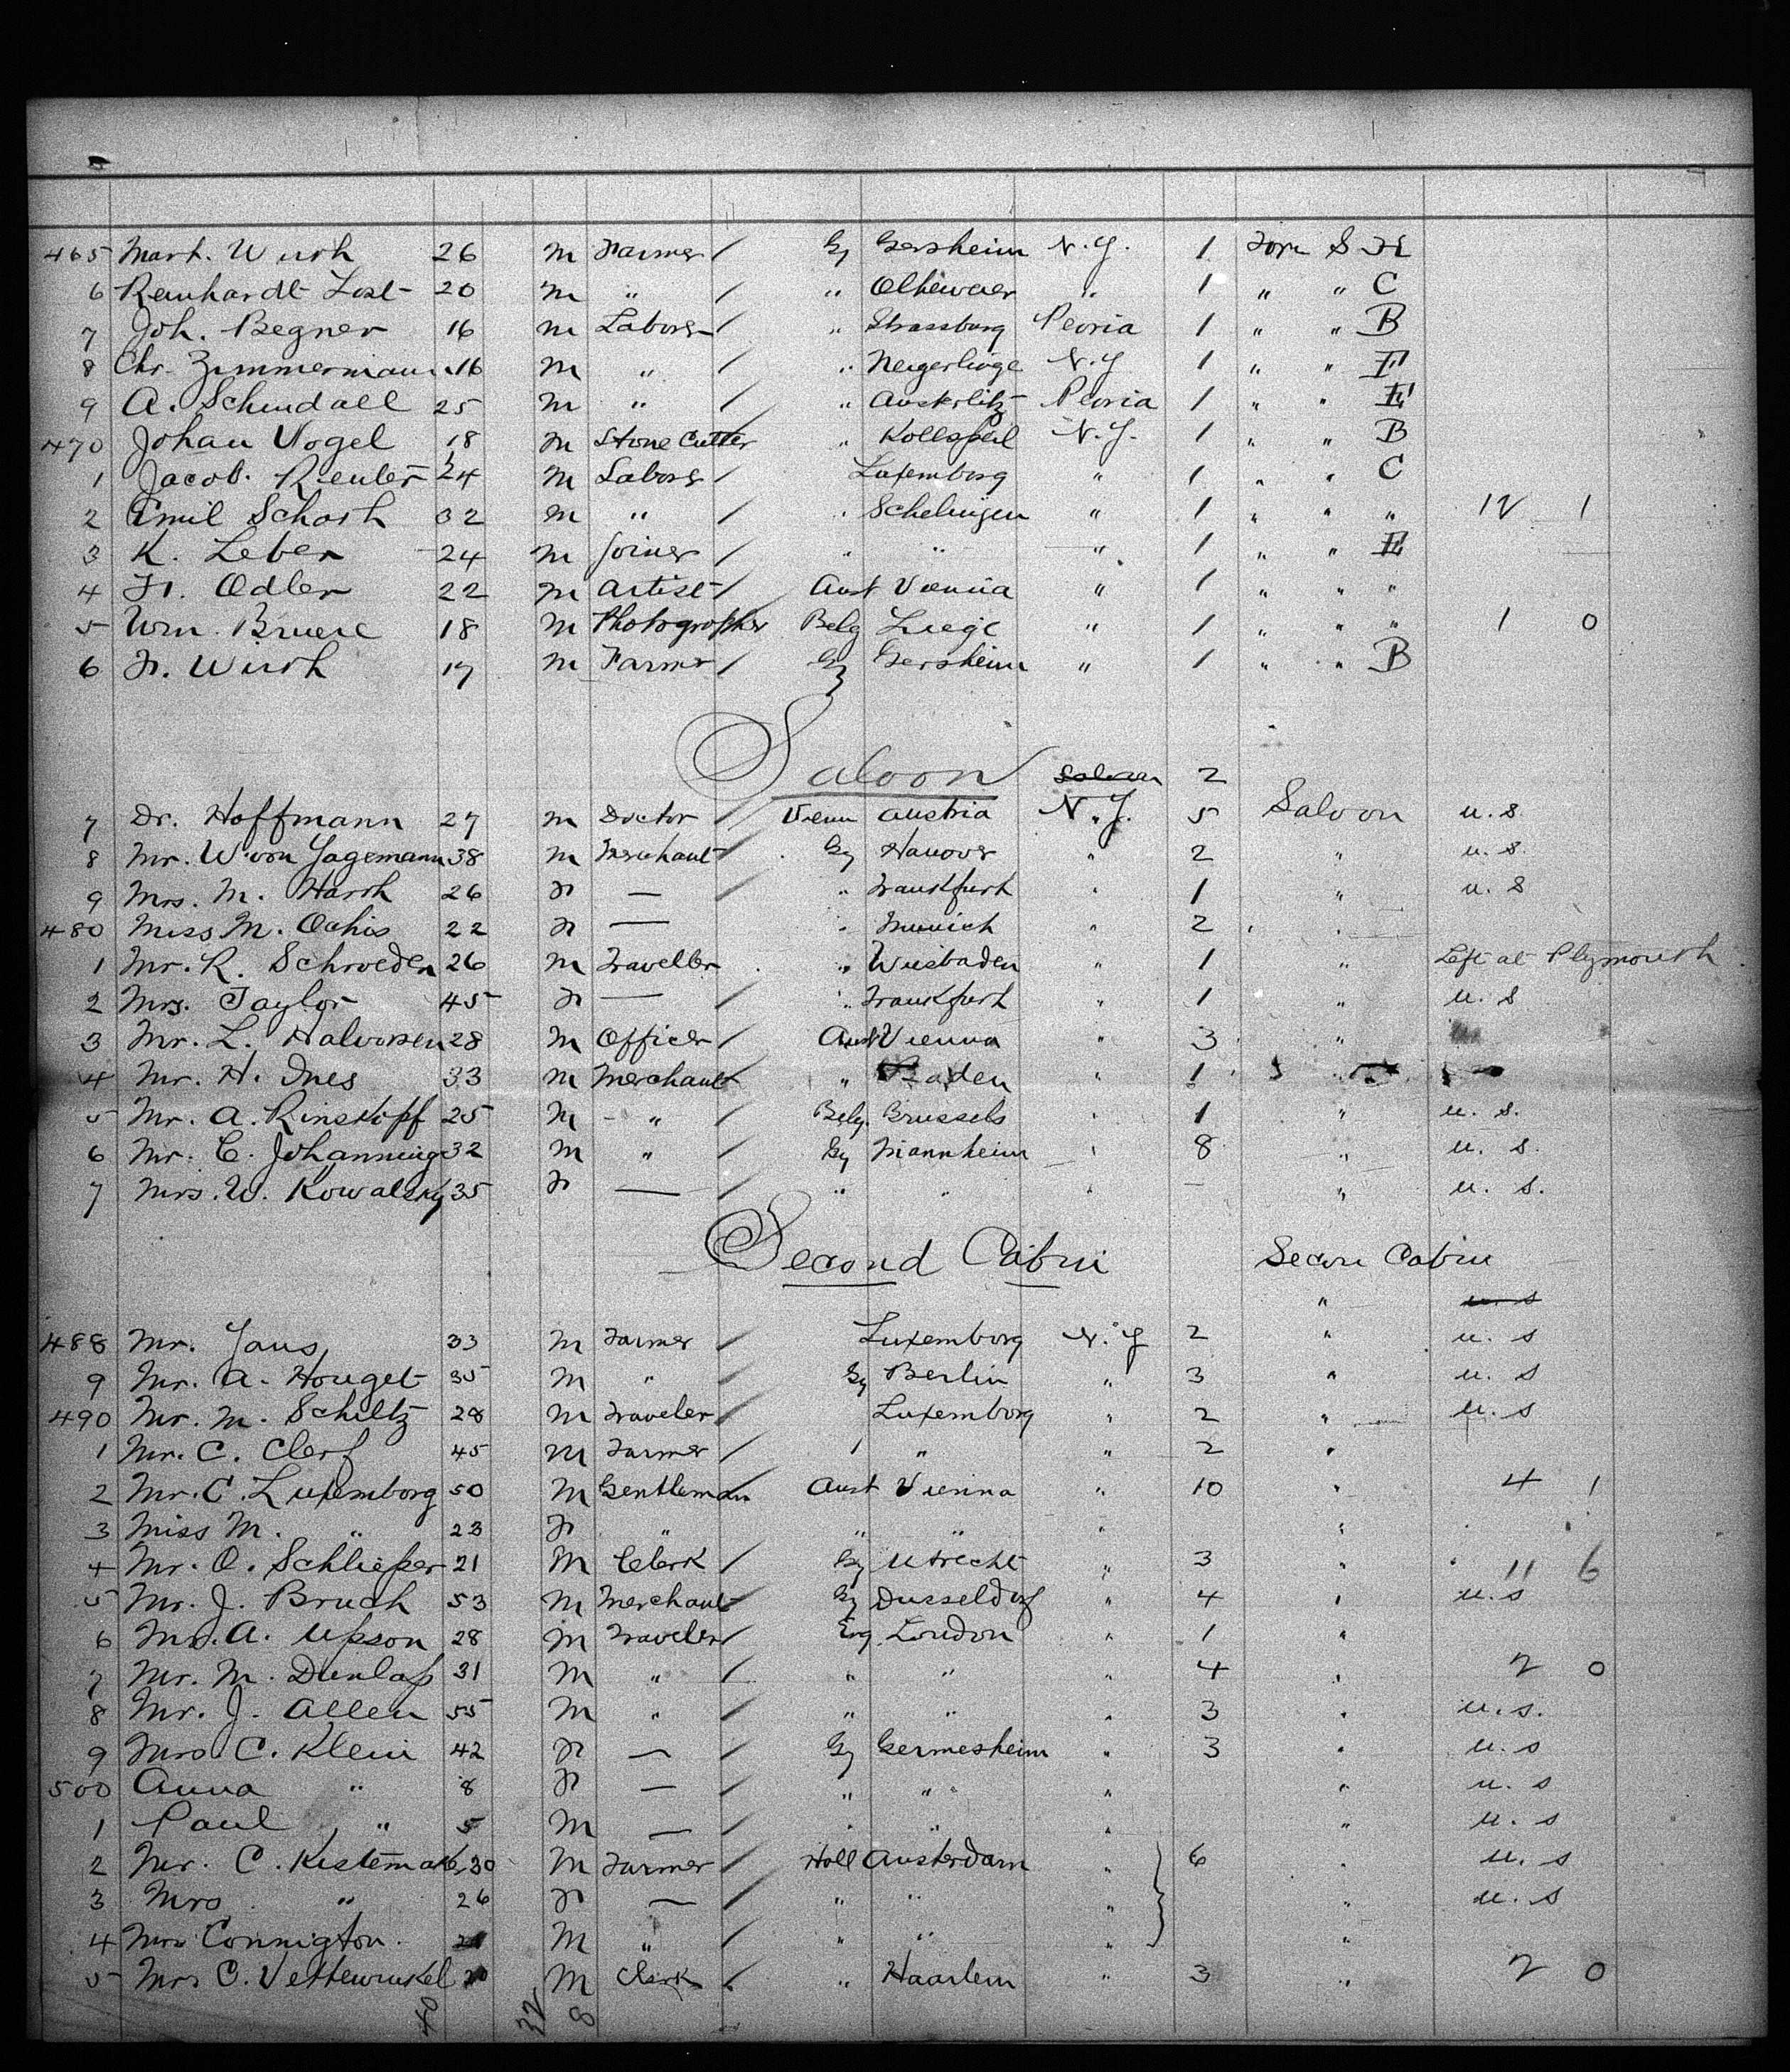 465 Mart. Wirth 26 m Farmer / Gy Gersheim N.Y. 1 Fore S H
6 Reinhardt Lost 20 m " / " 1 " " C
7 Joh. Begner 16 m Laborer / " Strassburg Peoria 1 " " B
8 Chr. Zimmermann 16 m " / " N.Y. 1 " "
9 A. Schindall 25 m " / " Austerlitz Peoria 1 " "
470 Johan Vogel 18 m Stone Cutter " N.Y. 1 " " B
1 Jacob. Reuter 24 m Labors / Luxemborg " 1 " " C
2 Emil Schoth 32 m " / " Schelingen " 1 " " " 12 1
3 K. Leber 24 m Joiner / " " " 1 " "
4 H. Odler 22 m Artist / Aust Vienna " 1 " " "
5 Wm. Bruere 18 m Photographer Belg Liege " 1 " " " 1 0
6 F. Wirth 17 m Farmer / Gy Gersheim " 1 " " B
Saloon Saloon 2
7 Dr. Hoffmann 27 m Doctor / Vienn Austria N.Y. 5 Saloon u.s.
8 Mr. W. von Jagemann 38 m Merchant / Gy Hanover " 2 " u.s.
9 Mrs. M. Harth 26 F — / " Frankfurth " 1 " u.s
480 Miss M. Ochis 22 F — " Munich " 2 "
1 Mr. R. Schroeder 26 m Traveller " Wiesbaden " 1 " Left at Plymouth
2 Mrs. Taylor 45 F — / " Frankfurth " 1 " u.s
3 Mr. L. Halvorsen 28 m Officer / Aust Vienna " 3 "
4 Mr. H. Ines 33 m Merchant " Baden " 1
5 Mr. A. Rinskopf 25 m " / Belg. Brussels " 1 " u.s.
6 Mr. C. Johanning 32 m " / Gy Mannheim " 8 " u.s.
7 Mrs. W. Kowalsky 35 F — / " " " — " u.s.
Second Cabin Secon Cabin
" u.s
488 Mr. Jans 33 m Farmer / Luxemborg N.Y 2 " u.s
9 Mr. A. Houget 35 m " / Gy Berlin " 3 " u.s
490 Mr. M. Schiltz 28 m Traveler / Luxemborg " 2 " u.s
1 Mr. C. Clerf 45 m Farmer / " " 2 "
2 Mr. C. Luxemborg 50 m Gentleman Aust Vienna " 10 " 4 1
3 Miss M. " 23 F " " " " "
4 Mr. O. Schlieper 21 m Clerk / Gy Utrecht " 3 " 11 6
5 Mr. J. Bruch 53 m Merchant Gy Dusseldorf " 4 " u.s
6 Mr. A. Upson 28 m Traveler / Eng London " 1 "
7 Mr. M. Dunlap 31 m " / " " " 4 " 2 0
8 Mr. J. Allen 55 m " / " " " 3 " u.s.
9 Mrs. C. Klein 42 F — / Gy Germesheim " 3 " u.s
500 Anna " 8 F — / " " " " u.s
1 Paul " 5 m — / " " " " u.s
2 Mr. C. Kistemake 30 m Farmer / Holl Amsterdam " 6 " u.s
3 Mrs " 26 F — / " " " " u.s
4 Mr Connigton. m " / " " " "
5 Mr C. Vettewinkel 20 m Clerk / " Haarlem " 3 " 2 0
40 32 8